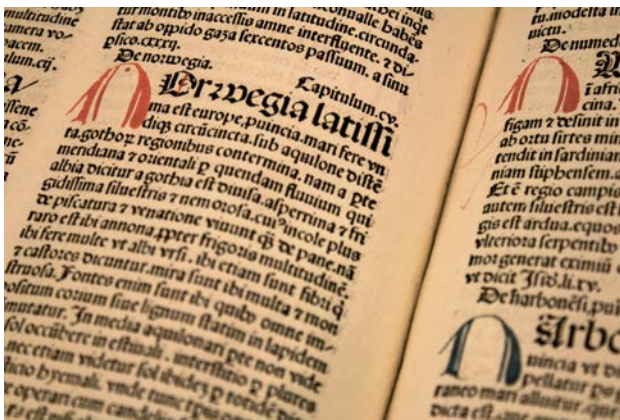 multitudine
amera vo
pacem.
ulum.cij.
tur montibꝰ inaccessis amne interfluente. ⁊ di
stat ab oppido gaza sexcentos passuum. a sinu
psico.cxxxij.
De norwegia. Capitulum.cv.
NOrwegia latissi
ma est europe.puincia.mari fere vn
diqꝫ circūcincta.sub aquilone distē
ta.gothoꝝ regionibus contermina. nam a pte
meridiana ⁊ orientali ꝑ quendam fluuium qui
albia dicitur a gothia est diuisa.asperrima ⁊ fri
gidissima siluestris ⁊ nemorosa.cuiꝰ incole plus
de piscatura ⁊ venatione viuunt qꝫ de pane.nā
raro est ibi annona.ppter frigoris multitudinē.
ibi fere multe vt albi vrsi. ibi etiam sunt fibri
⁊ castores dicuntur.mira sunt ibi multa ⁊ mon
struosa. Fontes enim sunt ibi quibꝰ omne im
positum corium siue lignum statim in lapidem
mutatur. In media aquilonari pte non vide
sol occūbere in estiuali. interstitio ꝑ plures
nec etiam videtur sol ibidem ꝑ totidē
hyemali. vnde tunc
operari cum candelis
tu.modesta
uictu.
De numed
N
i afri
cina.
figam ⁊ desinit in
ab ortu sirtes min
tendit in sardiniam
niam stiphensem.
Et ē regio campis
autem siluestris est
gis est ardua.equos
vlteriora serpentibꝰ
moi generat eximiū
vt dicit Jsid.li.xv.
De harbonēsi.pui
NArbo
uincia vt di
pellatur
raneo mari allnitur
dicta est